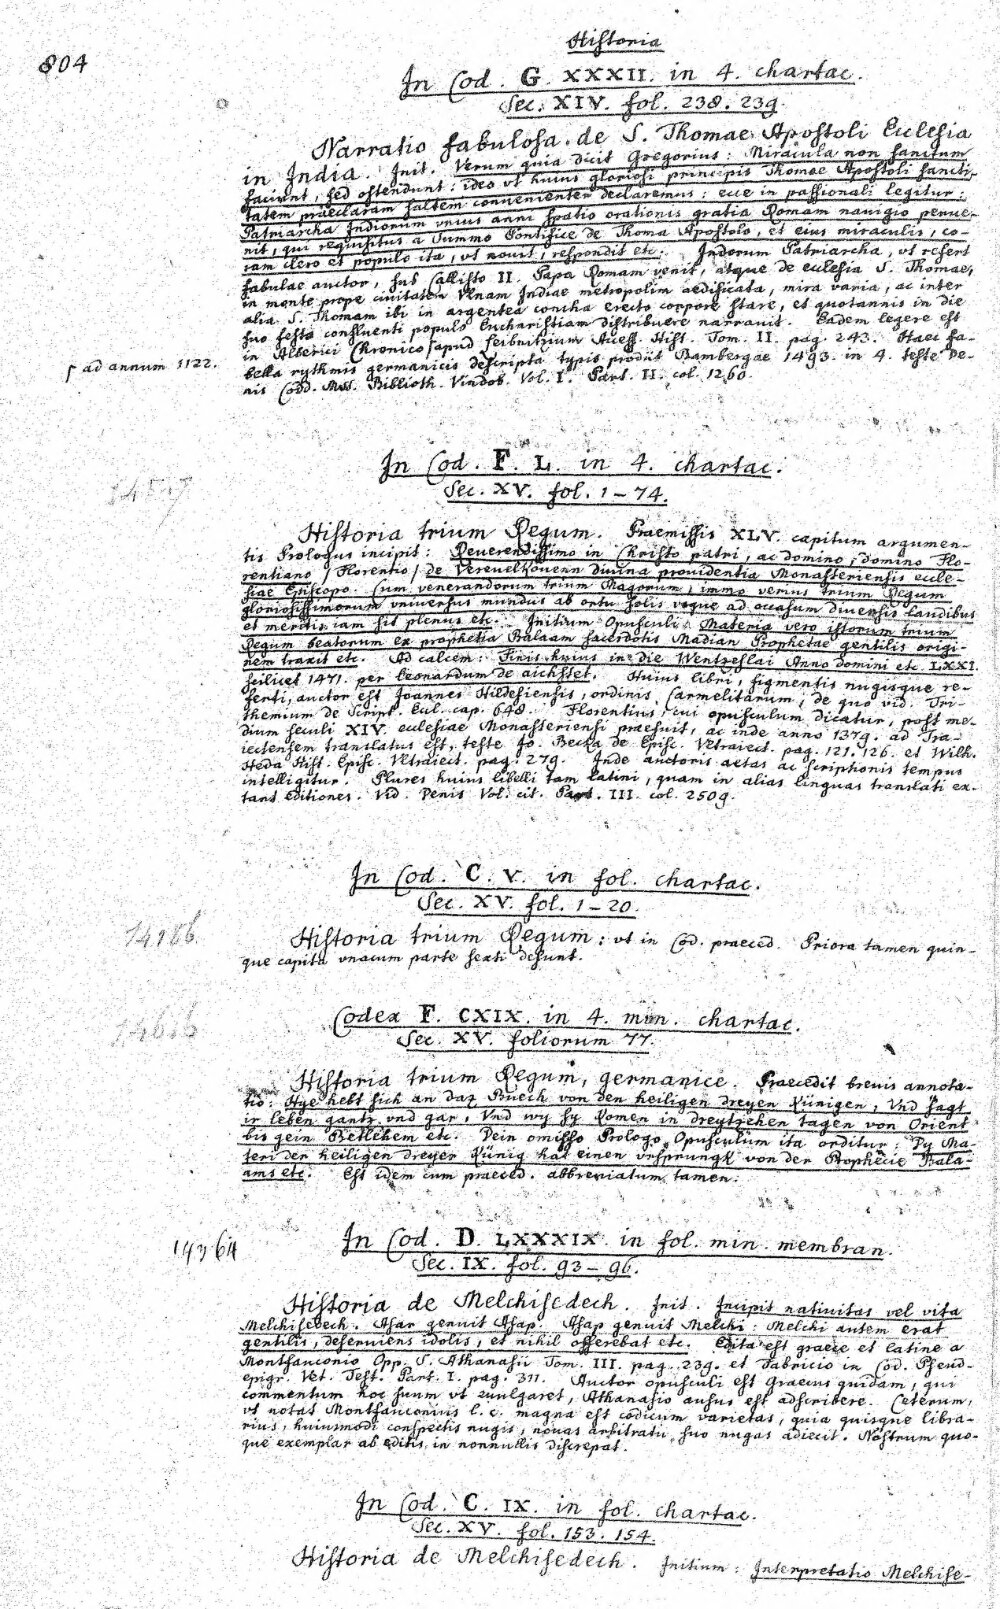 804
Historia
In Cod. G. XXXII. in 4. chartac.
Sec. XIV. fol. 238. 239.
Narratio fabulosa de S. Thomae Apostoli Ecclesia
in India. Init. Verum quia dicit Gregorius: Miracula non sanctum
faciunt, sed ostendunt: ideo vt huius gloriosi principis Thomae Apostoli sancti-
tatem praeclaram saltem conuenienter declaremus: ecce in passionali legitur:
Patriarcha Indiorum vnius anni spatio orationis gratia Romam nauigio perue-
nit, qui requisitus a Summo Pontifice de Thoma Apostolo, et eius miraculis, co-
ram clero et populo ita, vt nouit, respondit etc. Indorum Patriarcha, vt refert
fabulae auctor, sub Callisto II. Papa Romam venit, atque de ecclesia S. Thomae,
in monte prope ciuitatem Vlnam Indiae metropolim aedificata, mira varia, ac inter
alia S. Thomam ibi in argentea concha erecto corpore stare, et quotannis in die
suo festo confluenti populo Eucharistiam distribuere narrauit. Eadem legere est
in Alberici Chronico ſ apud Leibnitzium Access. Hist. Tom. II. pag. 243. Haec fa-
ſ ad annum 1122.
bella rythmis germanicis descripta typis prodiit Bambergae 1493. in 4. teste De-
nis Codd. Mss. Biblioth. Vindob. Vol. I. Part. II. col. 1260.
In Cod. F. L. in 4. chartac.
Sec. XV. fol. 1-74.
Historia trium Regum. Praemissis XLV. capitum argumen-
tis Prologus incipit: Reuerendissimo in Christo patri, ac domino, domino Flo-
rentiano / Florentio / de Vereuelkouenn diuina prouidentia Monasteriensis eccle-
siae Episcopo. Cum venerandorum trium Magorum, immo verius trium Regum
gloriosissimorum vniuersus mundus ab ortu solis vsque ad occasum diuersis laudibus
et meritis iam sit plenus etc. Initium Opusculi: Materia vero istorum trium
Regum beatorum ex prophetia Balaam sacerdotis Madian Prophetae gentilis origi-
nem traxit etc. Ad calcem: Finis huius in die Wentzeslai Anno domini etc. LXXI.
scilicet 1471. per leonardum de aichstet. Huius libri, figmentis nugisque re-
ferti, auctor est Joannes Hildesiensis, ordinis Carmelitarum, de quo vid. Tri-
themium de Script. Eccl. cap. 648. Florentius, cui opusculum dicatur, post me-
dium seculi XIV. ecclesiae Monasteriensi praefuit, ac inde anno 1379. ad Tra-
iectensem translatus est, teste Jo. Becka de Episc. Vltraiect. pag. 121. 126. et Wilh.
Heda Hist. Episc. Vltraiect. pag. 279. Inde auctoris aetas ac scriptionis tempus
intelligitur. Plures huius libelli tam latini, quam in alias linguas translati ex-
tant editiones. Vid. Denis Vol. cit. Part. III. col. 2509.
In Cod. C. V. in fol. chartac.
Sec. XV. fol. 1-20.
14186.
Historia trium Regum: vt in Cod. praeced. Priora tamen quin-
que capita vnacum parte sexti desunt.
Codex F. CXIX. in 4. min. chartac.
Sec. XV. foliorum 77.
Historia trium Regum, germanice. Praecedit breuis annota-
tio: Hye hebt sich an daz Buech von den heiligen dreyen Künigen, Vnd sagt
ir leben gantz vnd gar, Vnd wy sy komen in dreytzehen tagen von Orient
bis gein Betlehem etc. Dein omisso Prologo Opusculum ita orditur: Dy Ma-
teri der heiligen dreyer Künig hat einen vrsprungk von der Prophecie Bala-
ams etc. Est idem cum praeced. abbreviatum tamen.
14364
In Cod. D. LXXXIX. in fol. min. membran.
Sec. IX. fol. 93-96.
Historia de Melchisedech. Init. Incipit natiuitas vel vita
Melchisedech. Asar genuit Asap. Asap genuit Melchi: Melchi autem erat
gentilis, deseruiens idolis, et nihil offerebat etc. Edita est graece et latine a
Montfauconio Opp. S. Athanasii Tom. III. pag. 239. et Fabricio in Cod. Pseud-
epigr. Vet. Test. Part. I. pag. 311. Auctor opusculi est Graecus quidam, qui
commentum hoc suum vt euulgaret, Athanasio ausus est adscribere. Ceterum,
vt notat Montfauconius l. c. magna est codicum varietas, quia quisque libra-
rius, huiusmodi conspectis nugis, nouas arbitratu suo nugas adiecit. Nostrum quo-
que exemplar ab editis in nonnullis discrepat.
In Cod. C. IX. in fol. chartac.
Sec. XV. fol. 153. 154.
Historia de Melchisedech. Initium: Interpretatio Melchise-